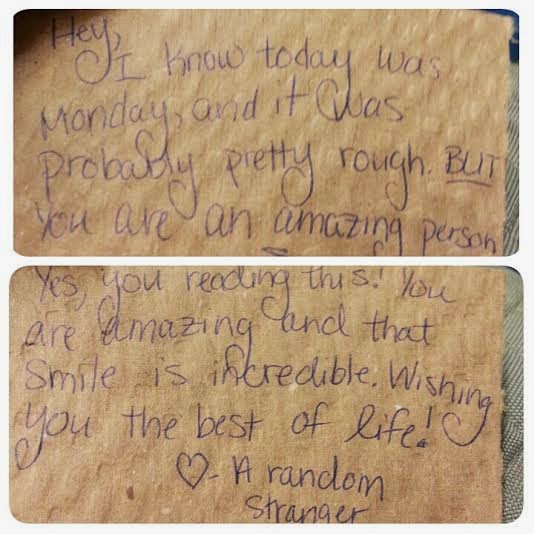 Hey,
I know today was
Monday, and it was
probably pretty rough. BUT
You are an amazing person
Yes, you reading this! You
are amazing and that
Smile is incredible. Wishing
you the best of life!
♡- A random
Stranger